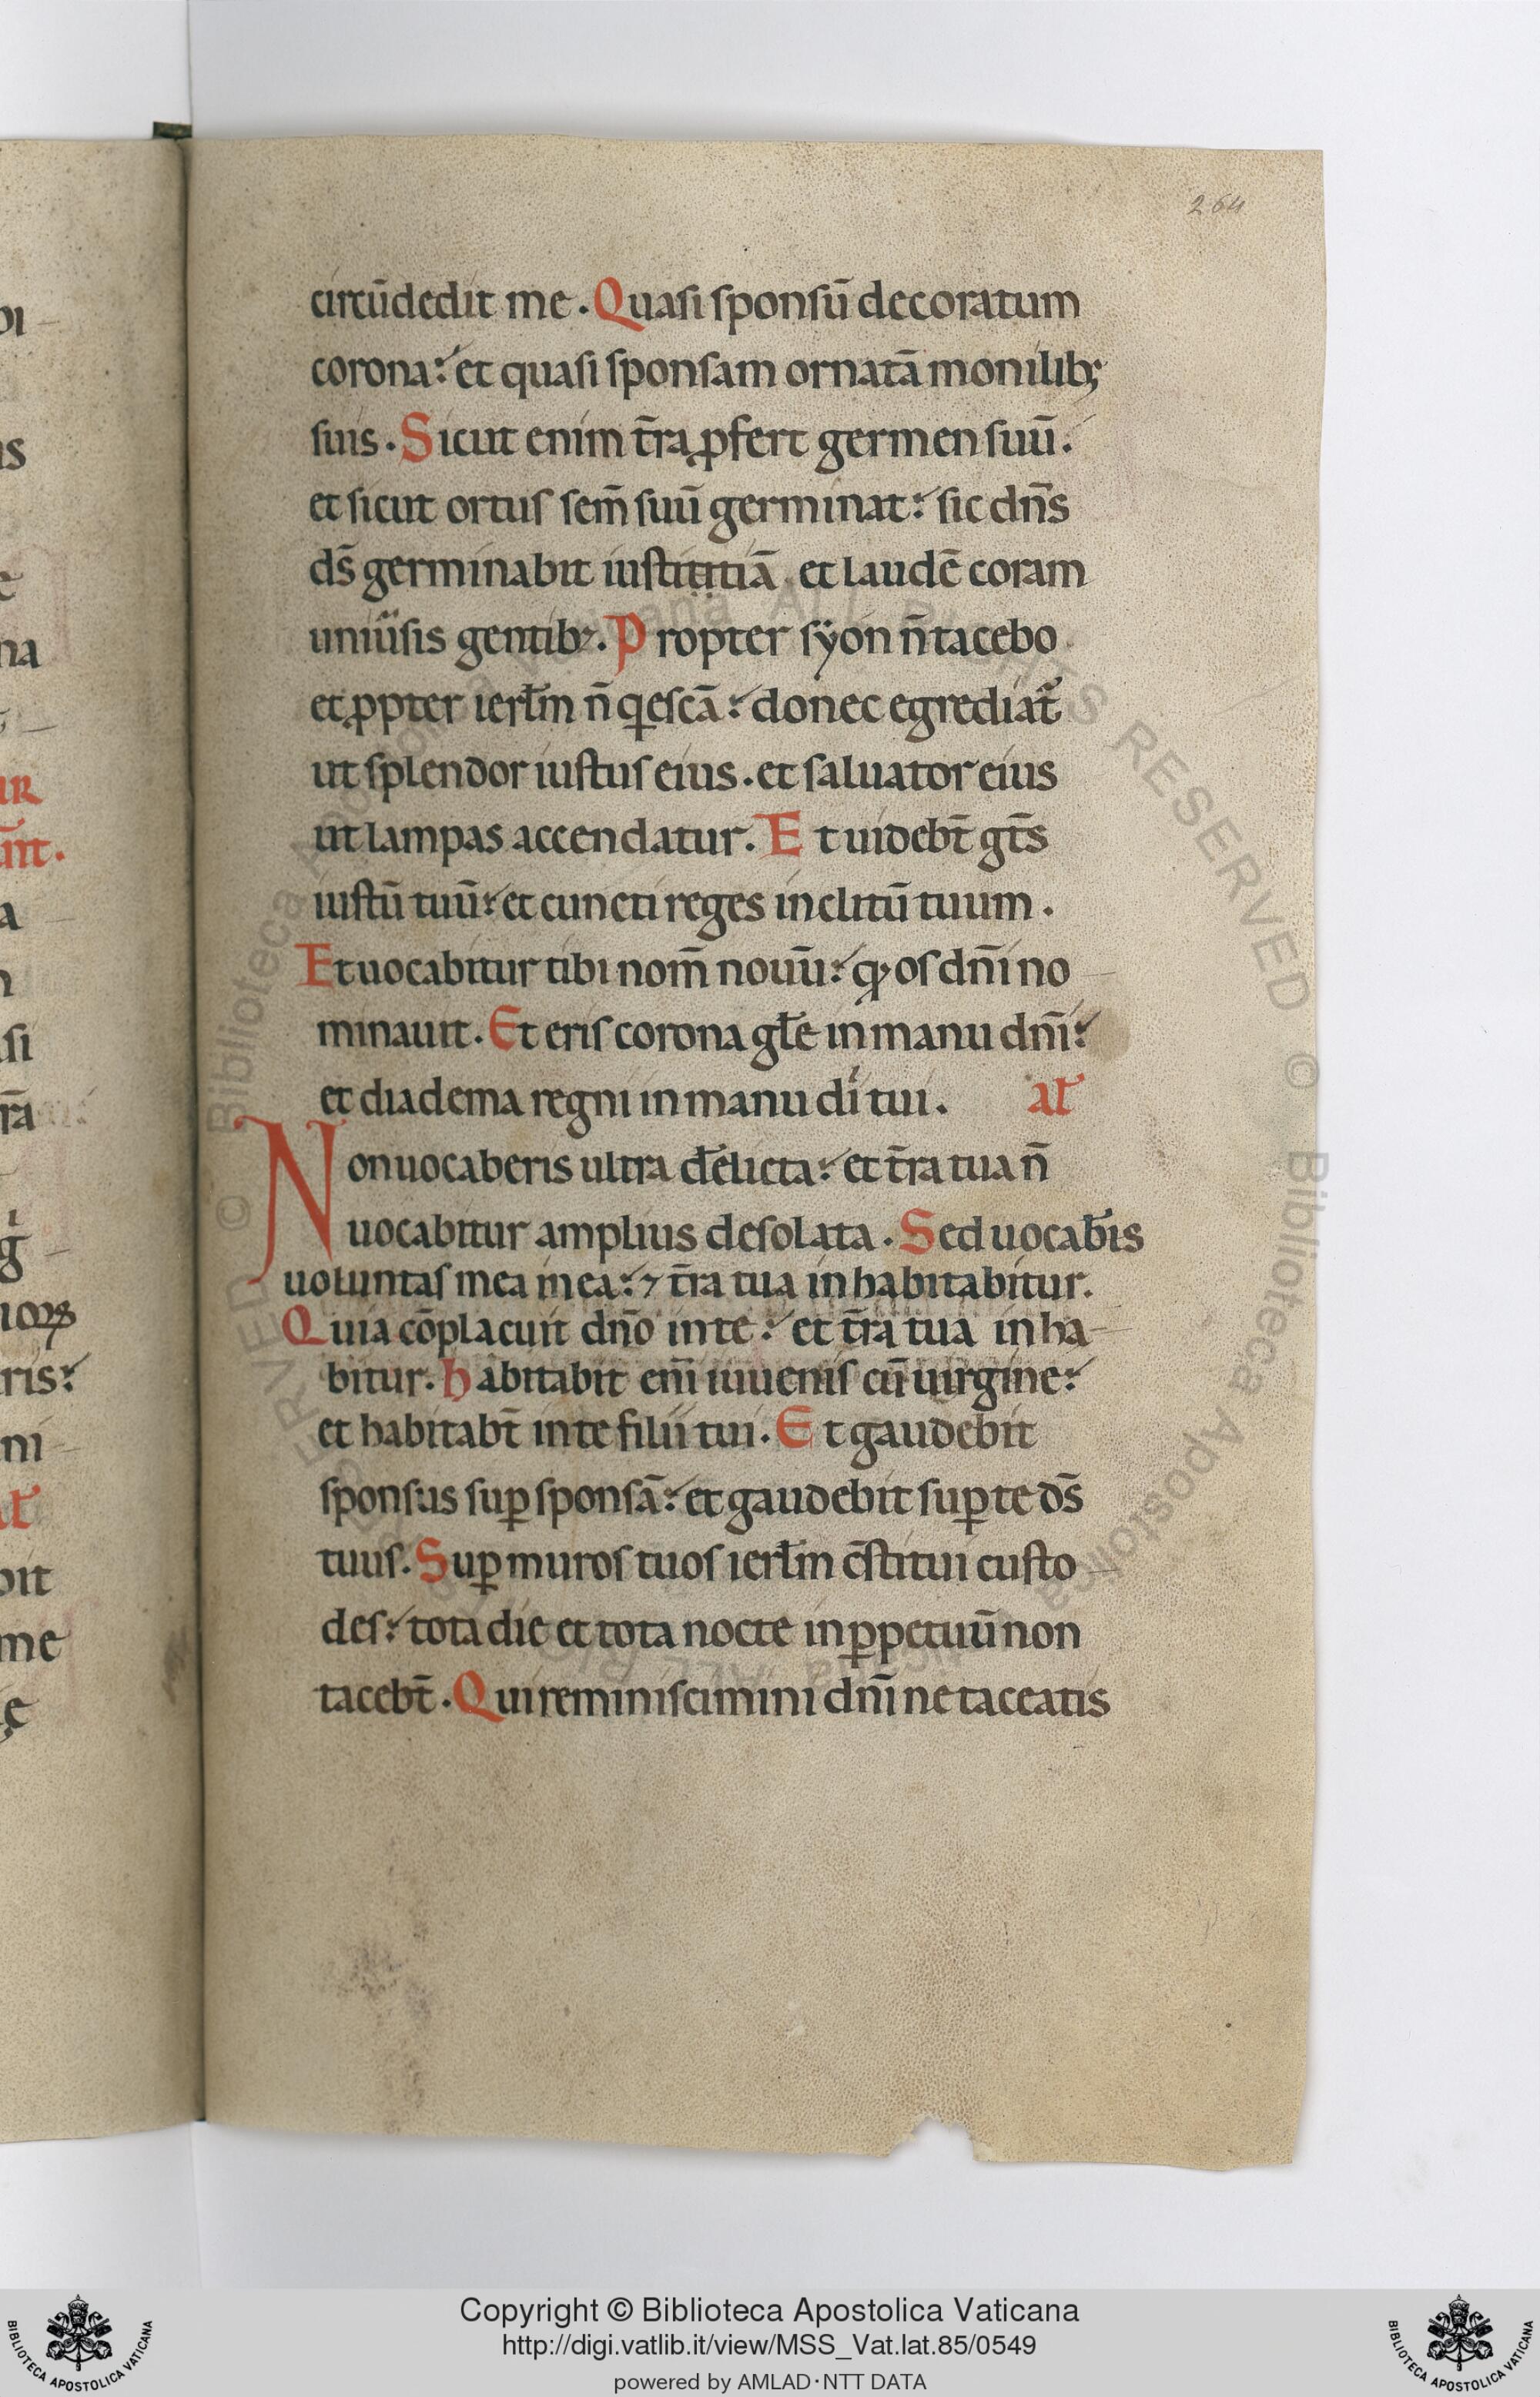 264
circūdedit me. Quasi sponsū decoratum
corona: et quasi sponsam ornatā monilib;
suis. Sicut enim t̄ra ꝓfert germen suū.
et sicut ortus sem̄ suū germinat: sic dn̄s
ds̄ germinabit iustititiā. et laudē coram
uniu̇sis gentib;. Propter syon n̄ tacebo
et ꝓpter ierl̄m n̄ qͥescā: donec egrediat᷑
ut splendor iustus eius. et saluator eius
ut lampas accendatur. Et uidebt̄ gt̄s
iustū tuū: et cuncti reges inclitū tuum.
Et uocabitur tibi nom̄ nouū: qͦ os dn̄i no
minauit. Et eris corona gl̄e in manu dn̄i:
et diadema regni in manu di̇ tui. al̄
Non uocaberis ultra derelicta: et t̄ra tua n̄
uocabitur amplius desolata. Sed uocab̄is
uoluntas mea in ea: ⁊ t̄ra tua inhabitabitur.
Quia cōplacuit dn̄o in te: et t̄ra tua inha-
bitur. habitabit eni̅ iuuenis cū uirgine:
et habitabt̄ in te filii tui. Et gaudebit
sponsus suꝑ sponsā: et gaudebit suꝑ te ds̄
tuus. Suꝑ muros tuos ierl̄m c̄stitui custo
des: tota die et tota nocte in ꝑpetuū non
tacebt̄. Qui reminiscimini dn̄i ne taceatis
Copyright © Biblioteca Apostolica Vaticana
http://digi.vatlib.it/view/MSS_Vat.lat.85/0549
powered by AMLAD·NTT DATA
BIBLIOTECA APOSTOLICA VATICANA
BIBLIOTECA APOSTOLICA VATICANA